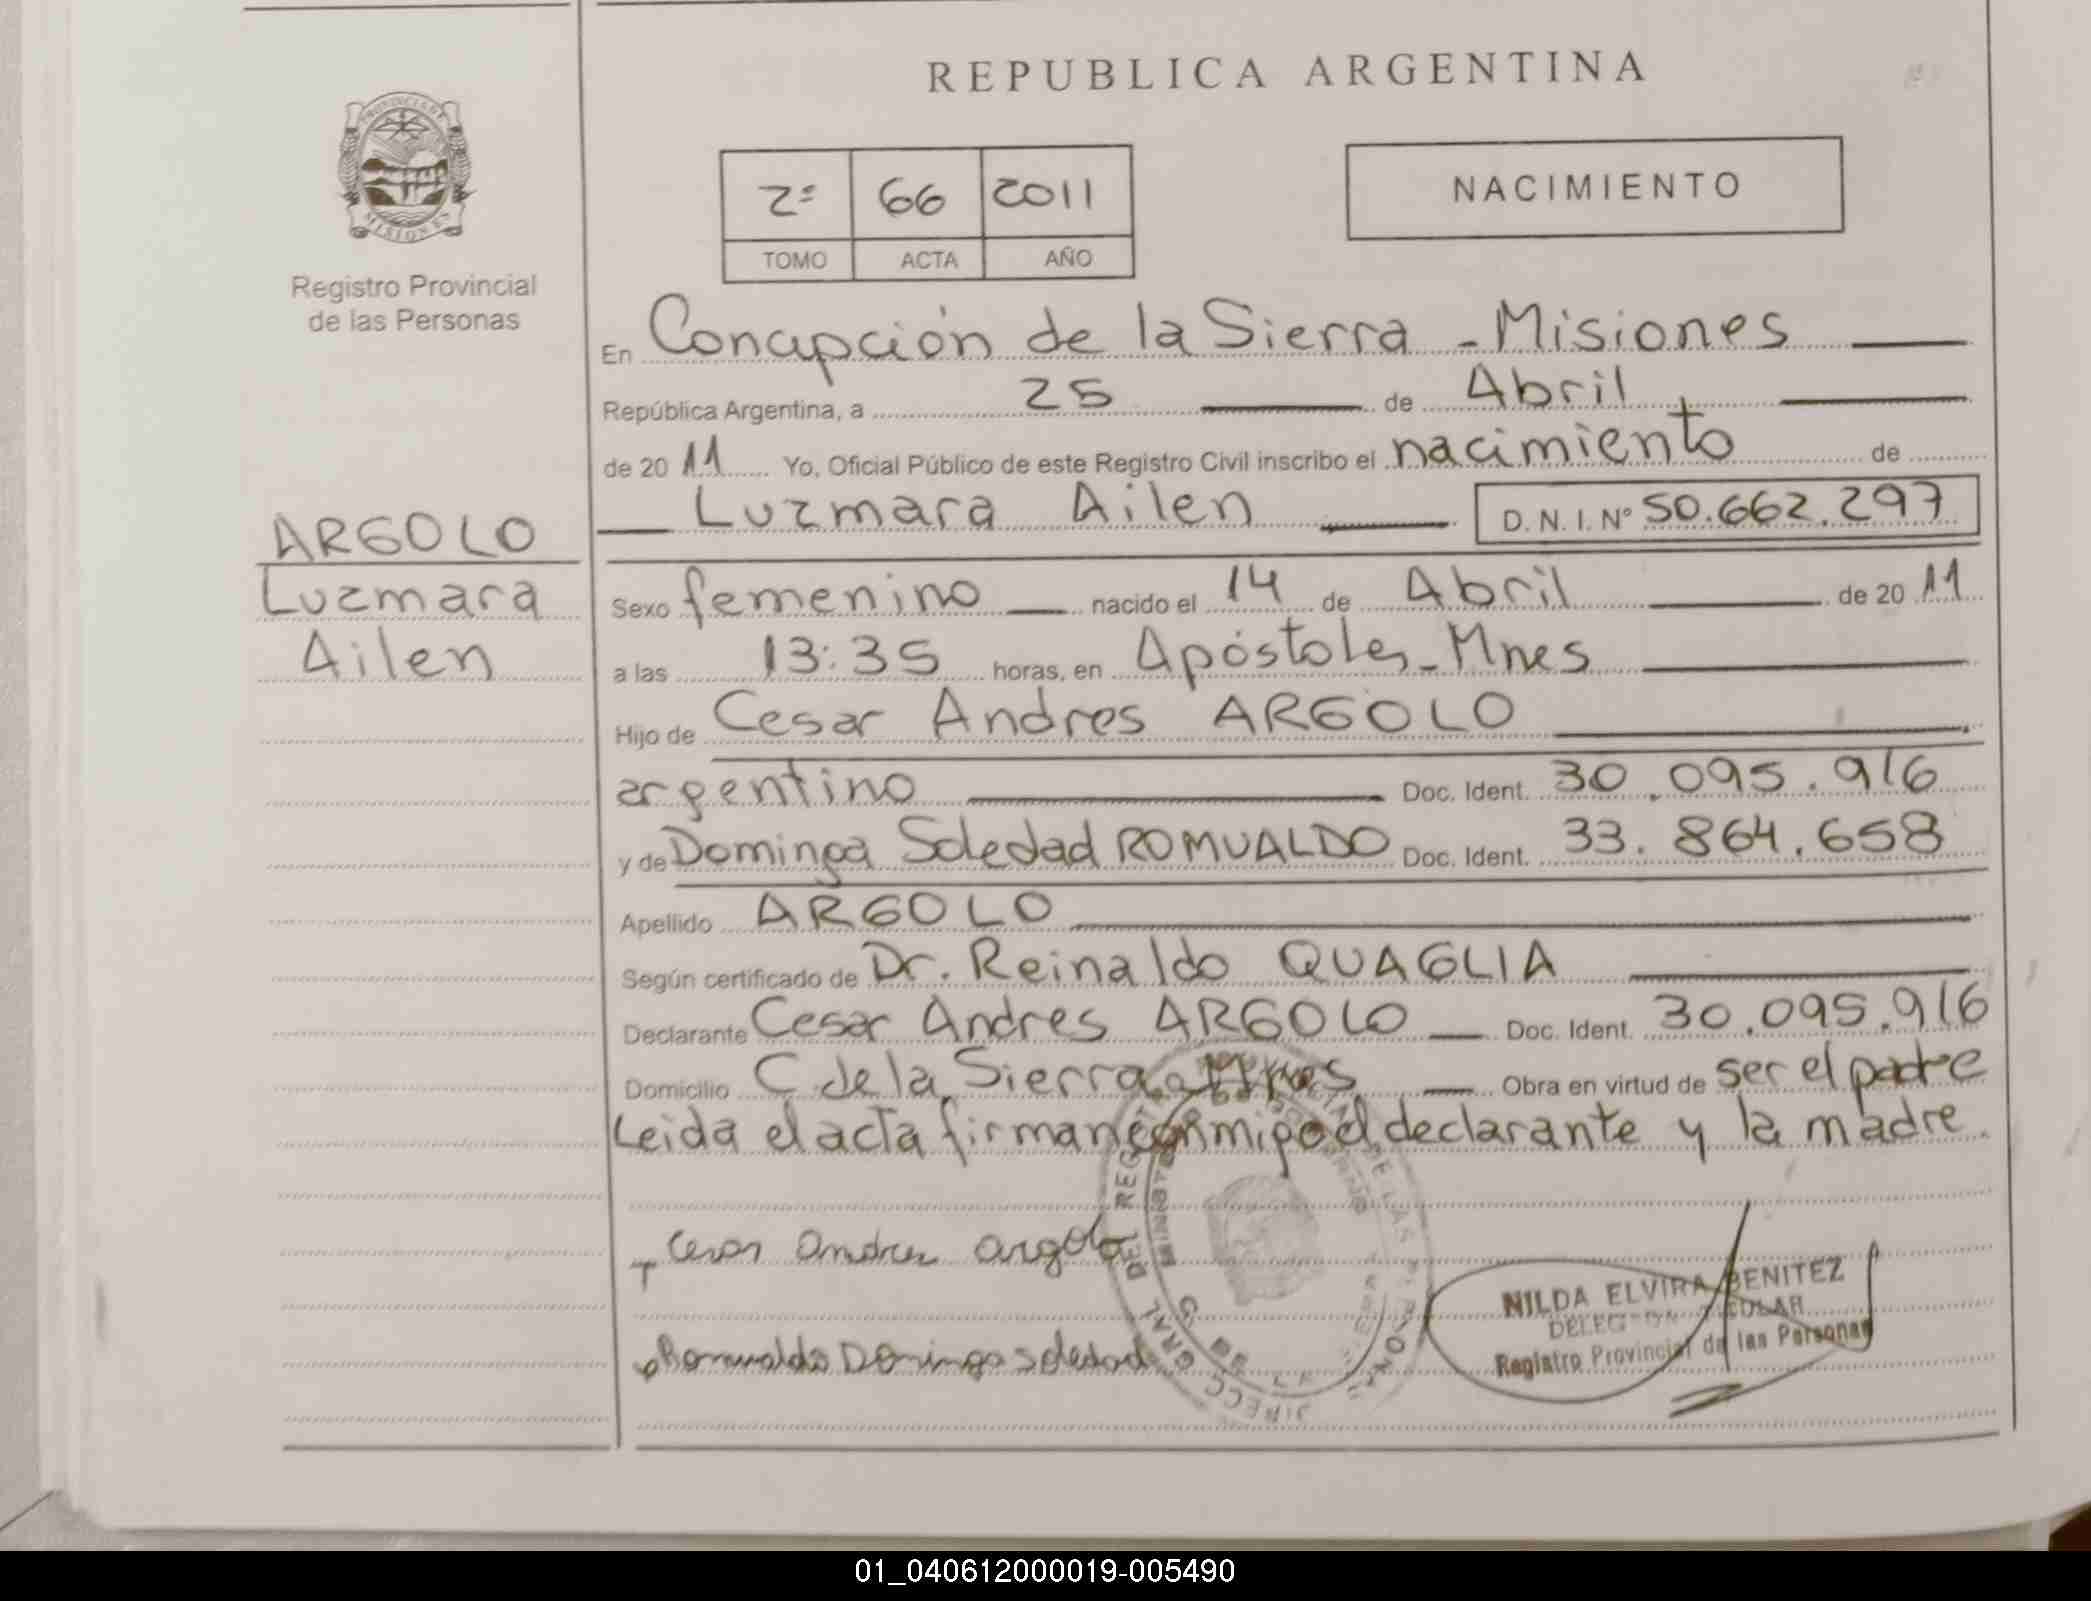 REPUBLICA ARGENTINA
PROVINCIA DE
MISIONES
Registro Provincial
de las Personas
2º 66 2011
TOMO ACTA AÑO
NACIMIENTO
En Concepción de la Sierra - Misiones
República Argentina, a 25 de Abril
de 20 11 Yo, Oficial Público de este Registro Civil inscribo el nacimiento de
Luzmara Ailen D.N.I. Nº 50.662.297
ARGOLO
Luzmara
Ailen
Sexo femenino nacido el 14 de Abril de 20 11
a las 13:35 horas, en Apóstoles - Mnes
Hijo de Cesar Andres ARGOLO
argentino Doc. Ident. 30.095.916
y de Dominga Soledad ROMUALDO Doc. Ident. 33.864.658
Apellido ARGOLO
Según certificado de Dr. Reinaldo QUAGLIA
Declarante Cesar Andres ARGOLO Doc. Ident. 30.095.916
Domicilio C. de la Sierra - Mnes Obra en virtud de ser el padre
Leida el acta firman conmigo el declarante y la madre.
Cesar Andres Argolo
Romualdo Dominga Soledad
NILDA ELVIRA BENITEZ
DELEGADA TITULAR
Registro Provincial de las Personas
01_040612000019-005490